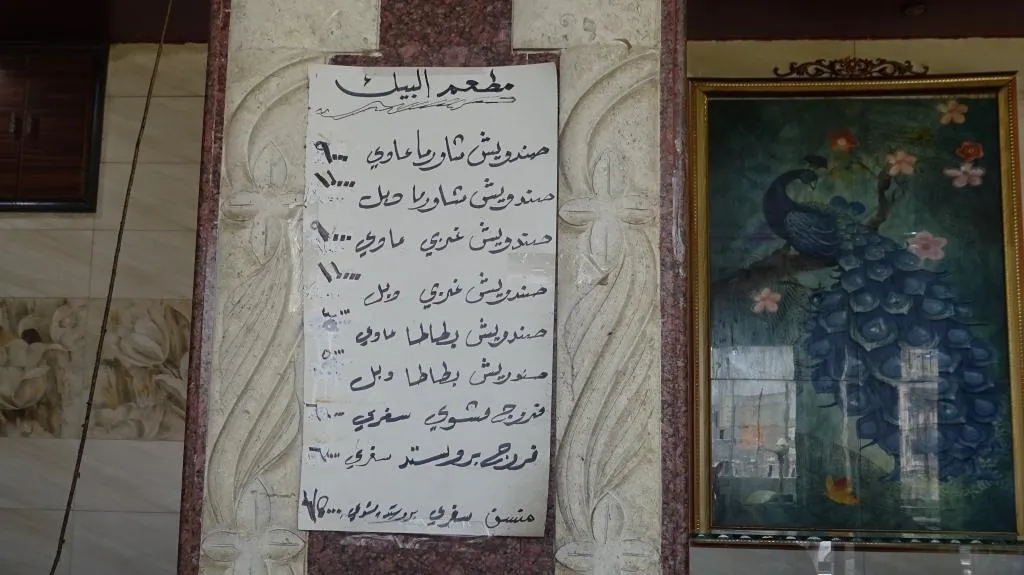 مطعم البيك
صندويش شاورما عاوي ٩٠٠٠
صندويش شاورما وبل ١١٠٠٠
صندويش غربي عاوي ٩٠٠٠
صندويش غربي وبل ١١٠٠٠
صندويش بطاطا عاوي
صندويش بطاطا وبل ٥٠٠٠
فروج مشوي سفري
فروج بروستد سفري
سفري بروستد مشوي